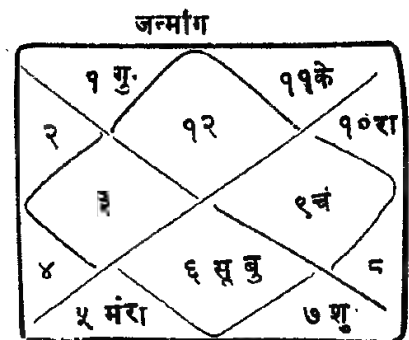 जन्मांग
१ गु.
११के
२
१२
१०रा
३
९चं
४
६ सू बु
८
५ मंरा
७ शु